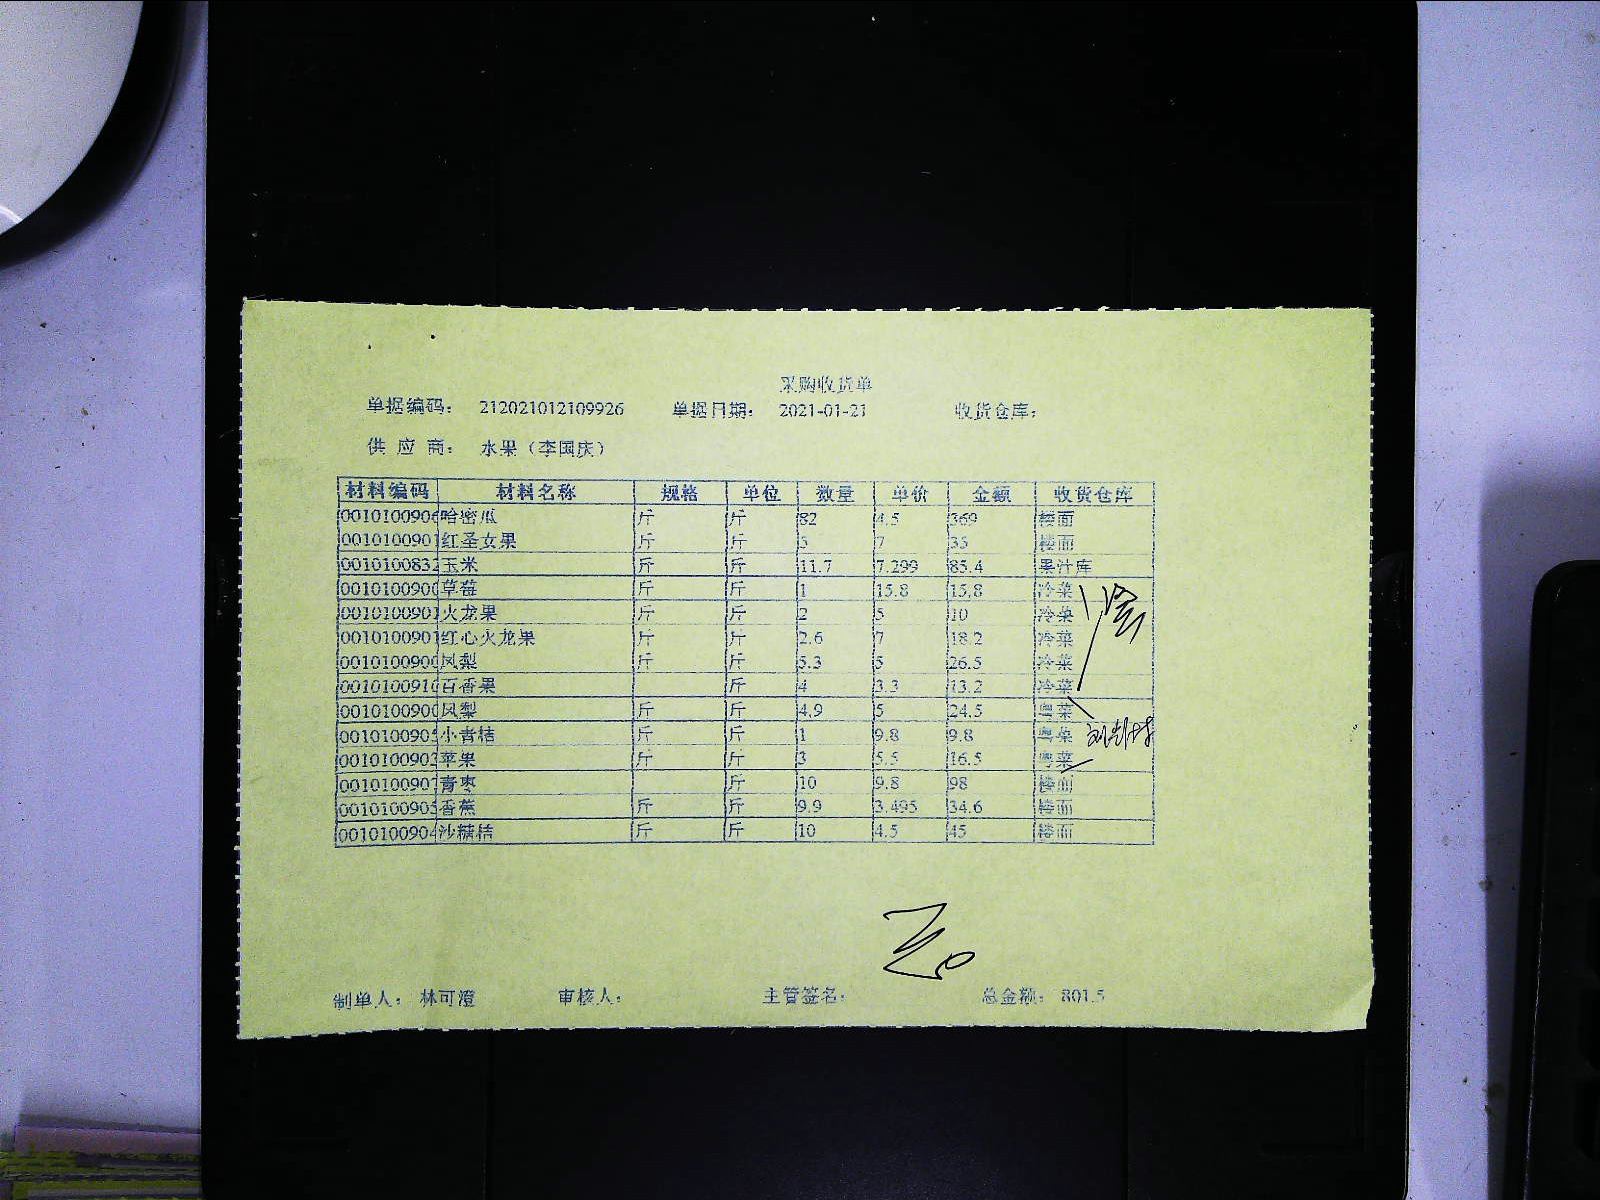 采购收货单
单据编码： 212021012109926 单据日期： 2021-01-21 收货仓库：
供 应 商： 水果（李国庆）
材料编码 材料名称 规格 单位 数量 单价 金额 收货仓库
001010090 哈密瓜 斤 斤 82 4.5 369 楼面
001010090 红圣女果 斤 斤 5 7 35 楼面
001010083 玉米 斤 斤 11.7 7.299 85.4 果汁库
001010090 草莓 斤 斤 1 15.8 15.8 冷菜
001010090 火龙果 斤 斤 2 5 10 冷菜
001010090 红心火龙果 斤 斤 2.6 7 18.2 冷菜
001010090 凤梨 斤 斤 5.3 5 26.5 冷菜
001010091 百香果 斤 4 3.3 13.2 冷菜
001010090 凤梨 斤 斤 4.9 5 24.5 粤菜
001010090 小青桔 斤 斤 1 9.8 9.8 粤菜
001010090 苹果 斤 斤 3 5.5 16.5 粤菜
001010090 青枣 斤 10 9.8 98 楼面
001010090 香蕉 斤 斤 9.9 3.495 34.6 楼面
001010090 沙糖桔 斤 斤 10 4.5 45 楼面
制单人： 林可澄 审核人： 主管签名： 总金额： 801.5